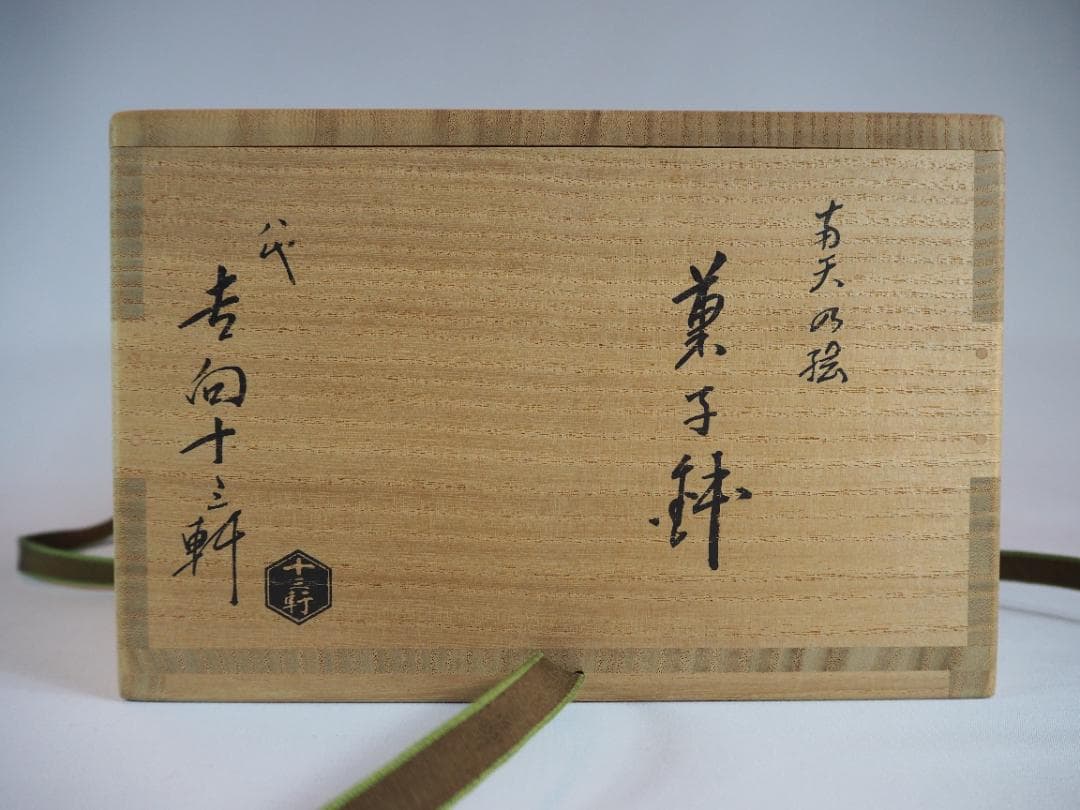 南天乃絵
菓子鉢
八代
吉向十三軒
十三軒